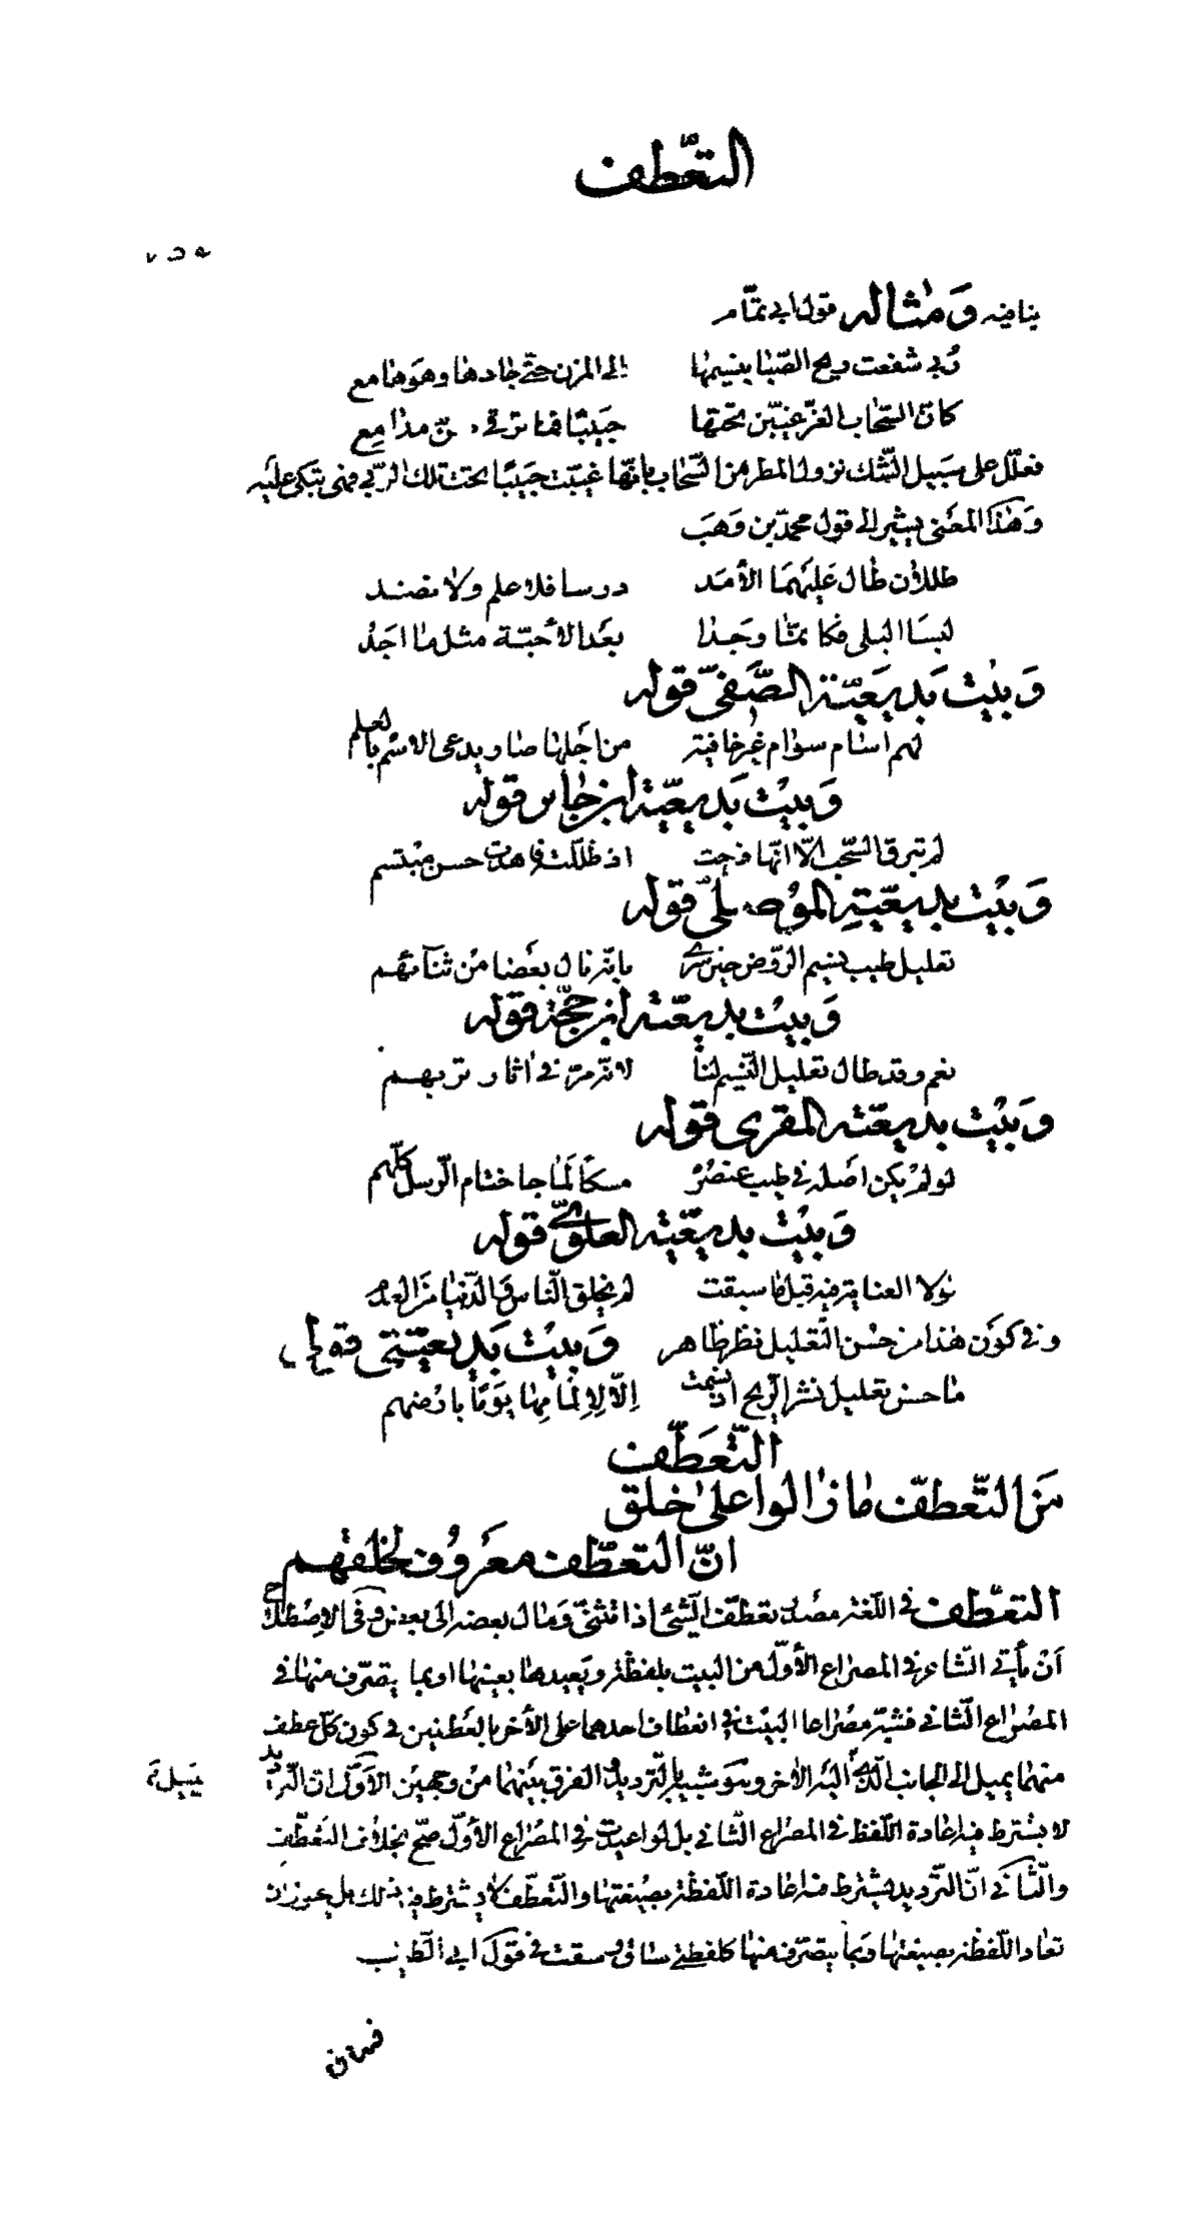 التعّطف
ينافيه وَمثاله قول ابي تمّام
رُبى شفعت ريح الصّبا بنسيمها الى المزن حتّى جادها وهو هامع
كانّ السّحاب الغرّ غيّبن تحتها حَبيبًا فما ترقى لهنّ مدامع
فعلّل على سَبيل الشّك نزول المطر من السّحاب بانّها غيّبت حَبيبًا تحت تلك الرّبى فهى تبكى عليه
وَهذا المعَنى يشير الى قول محمّد بن وَهَب
طللان طال عَليهمَا الأمَد درسا فلا علم ولا نضد
لبسَا البلى فكانمّا وجَدا بعَد الأحبّة مثل ما اجَدُ
وَبَيْت بَديعَيّة الصَّفىّ قوله
لهم اسام سوام غير خافية من اجَلها صار يدعى الاسْم بالعلم
وَبيْت بَديعيّة ابن جابر قوله
لم تبرق السّحب الّا انّها فرحت اذ ظلّلته فابدت حسن مبْتسم
وَبيْت بديعيّة الموْصلىّ قوله
تعليل طيب نسيم الرّوض حين سرى بانّه نال بعَضا من ثنآئهم
وَبيْت بديعيّة ابن حجّة قوله
نعم وقد طال تعليل النّسيم لنا لانّه مرّ فى اثار تربهم
وبَيْت بديعيّته المقرى قوله
لو لم يكن اصَله فى طيب عنصرُ مسكًا لَما جا ختام الرّسل كلّهم
وَبيْت بديعيّته العلوىّ قوله
لولا العناية فيه قبل ما سبقت لم يخلق النّاس فى الدّنيا من العدم
وفى كوَن هذا من حسْن التّعليل نظر ظاهر وَبيْت بَديعيّتى قولى
ما حسن تعليل نشر الرّيح اذ نسمت اِلّا لِالمامِها يوَمًا بارْضهم
التّعَطّف
مَنَ التّعطفّ ما زالوا على خلق
انّ التعطّف معَروُف لخلقهم
التعّطف فى اللّغة مصَدر تعطّف الشّئ اذا تثنىّ وَمال بعضه الى بعض وفى الاصْطلاح
اَنْ يأتى الشّاعر فى المصراع الأوّل من البيت بلفظة ويعَيدها بعينها او بما يتصرّف منها فى
المصْراع الثّانى فشبّه مصْراعا البيْت فى انعطاف احدهما على الأخر بالعَطفين فى كون كلّ عطف
منهما يميل الى الجانب الّذى يميل اليْه الأخر وهوَ شبيه بالترّديد والفرق بيَنهما منْ وجهيَن الأَوّل انّ الترّديد
لا يشترط فيه اعادة اللّفظ فى المصْراع الثّانى بل لو اعيدت فى المصْراع الأوّل صحّ بخلاف التعَطّف
والثّانى انّ الترّديد يشترط فيه اعادة اللّفظة بصيْغتها والتّعطّف لا يشترط فيه ذلك بل يجوز ان
تعاد اللّفظة بصيغتها وَبما يتصرّف منها كلفظتى ساق وسقت فى قول ابى الطّيب
فساق